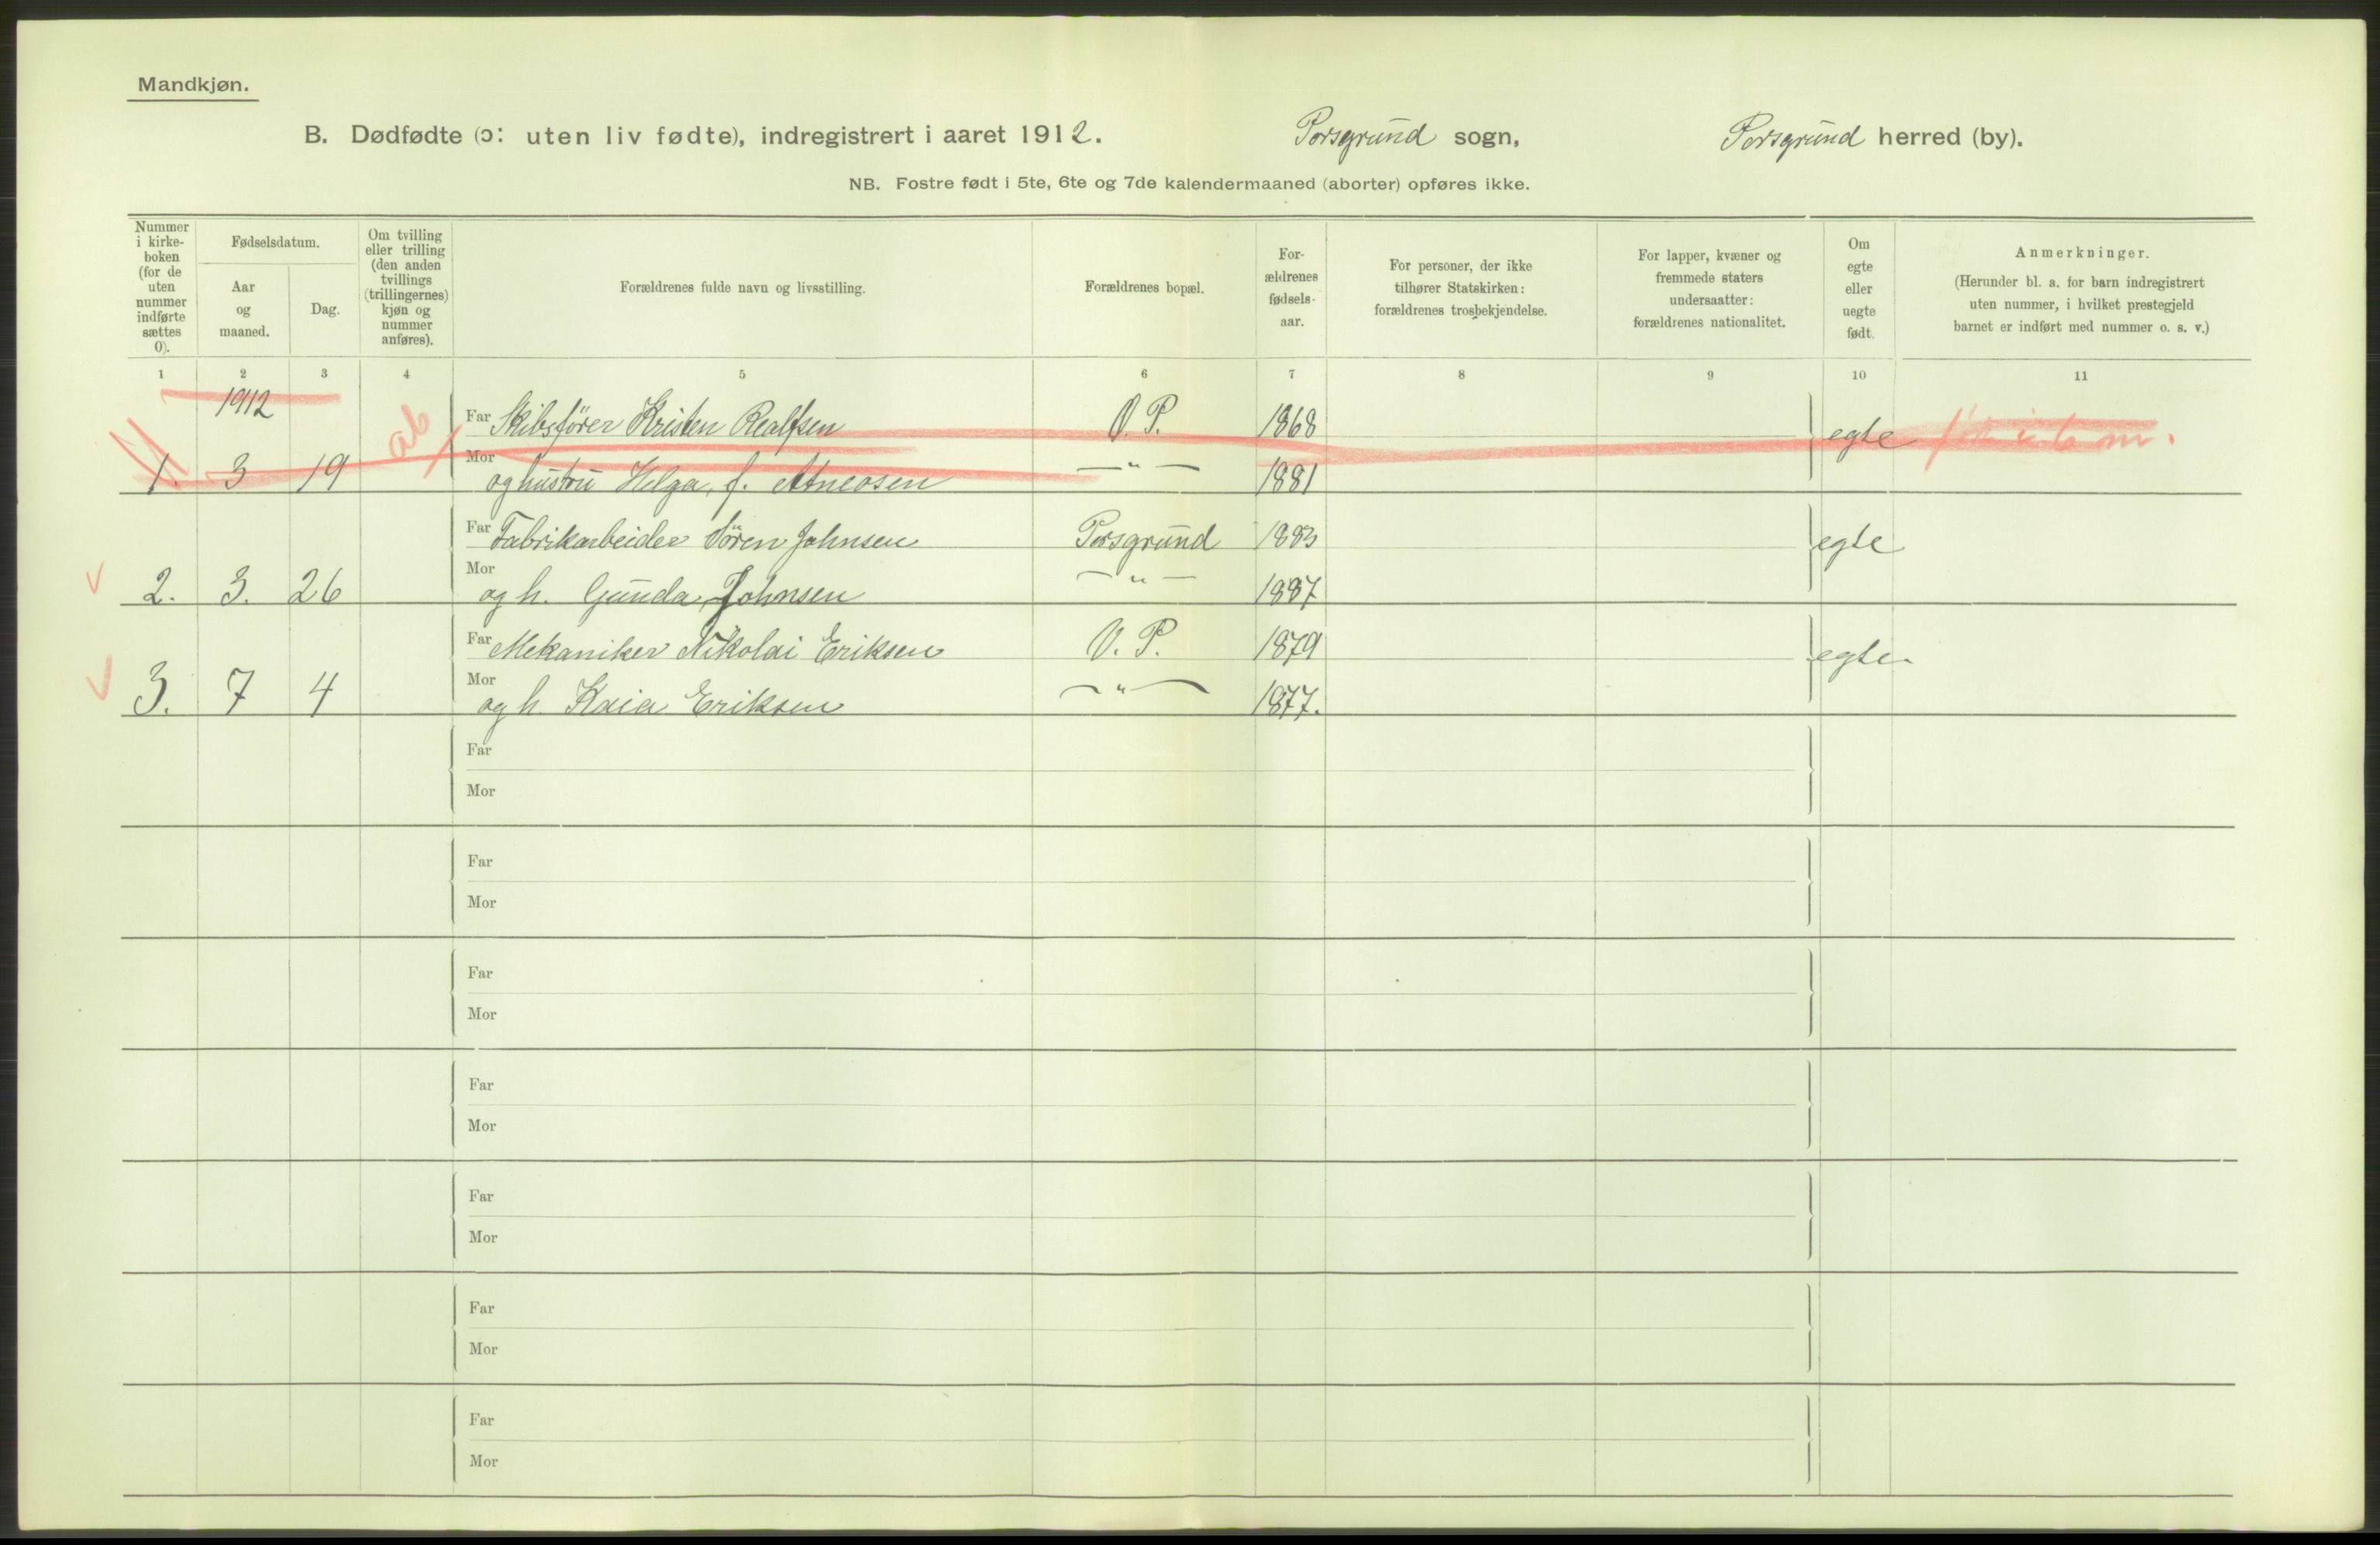 Mandkjøn.
B. Dødfødte (ɔ: uten liv fødte), indregistrert i aaret 1912. Porsgrund sogn, Porsgrund herred (by).
NB. Fostre født i 5te, 6te og 7de kalendermaaned (aborter) opføres ikke.
Nummer i kirke-boken (for de uten nummer indførte sættes 0).
Fødselsdatum.
Aar og maaned.
Dag.
Om tvilling eller trilling (den anden tvillings (trillingernes) kjøn og nummer anføres).
Forældrenes fulde navn og livsstilling.
Forældrenes bopæl.
For-ældrenes fødsels-aar.
For personer, der ikke tilhører Statskirken: forældrenes trosbekjendelse.
For lapper, kvæner og fremmede staters undersaatter: forældrenes nationalitet.
Om egte eller uegte født.
Anmerkninger.
(Herunder bl. a. for barn indregistrert uten nummer, i hvilket prestegjeld barnet er indført med nummer o. s. v.)
1 2 3 4 5 6 7 8 9 10 11
1912
Far Skibsfører Kristen Realfsen V. P. 1868 egte
1. 3 19 ab Mor og hustru Helga, f. — " — 1881
Far Fabrikarbeider Sören Johnsen Porsgrund 1883 egte
2. 3. 26 Mor og h. Gunda Johnsen — " — 1887
Far Mekaniker Nikolai Eriksen V. P. 1879 egte
3. 7 4 Mor og h. Kaia Eriksen — " — 1877.
Far
Mor
Far
Mor
Far
Mor
Far
Mor
Far
Mor
Far
Mor
Far
Mor